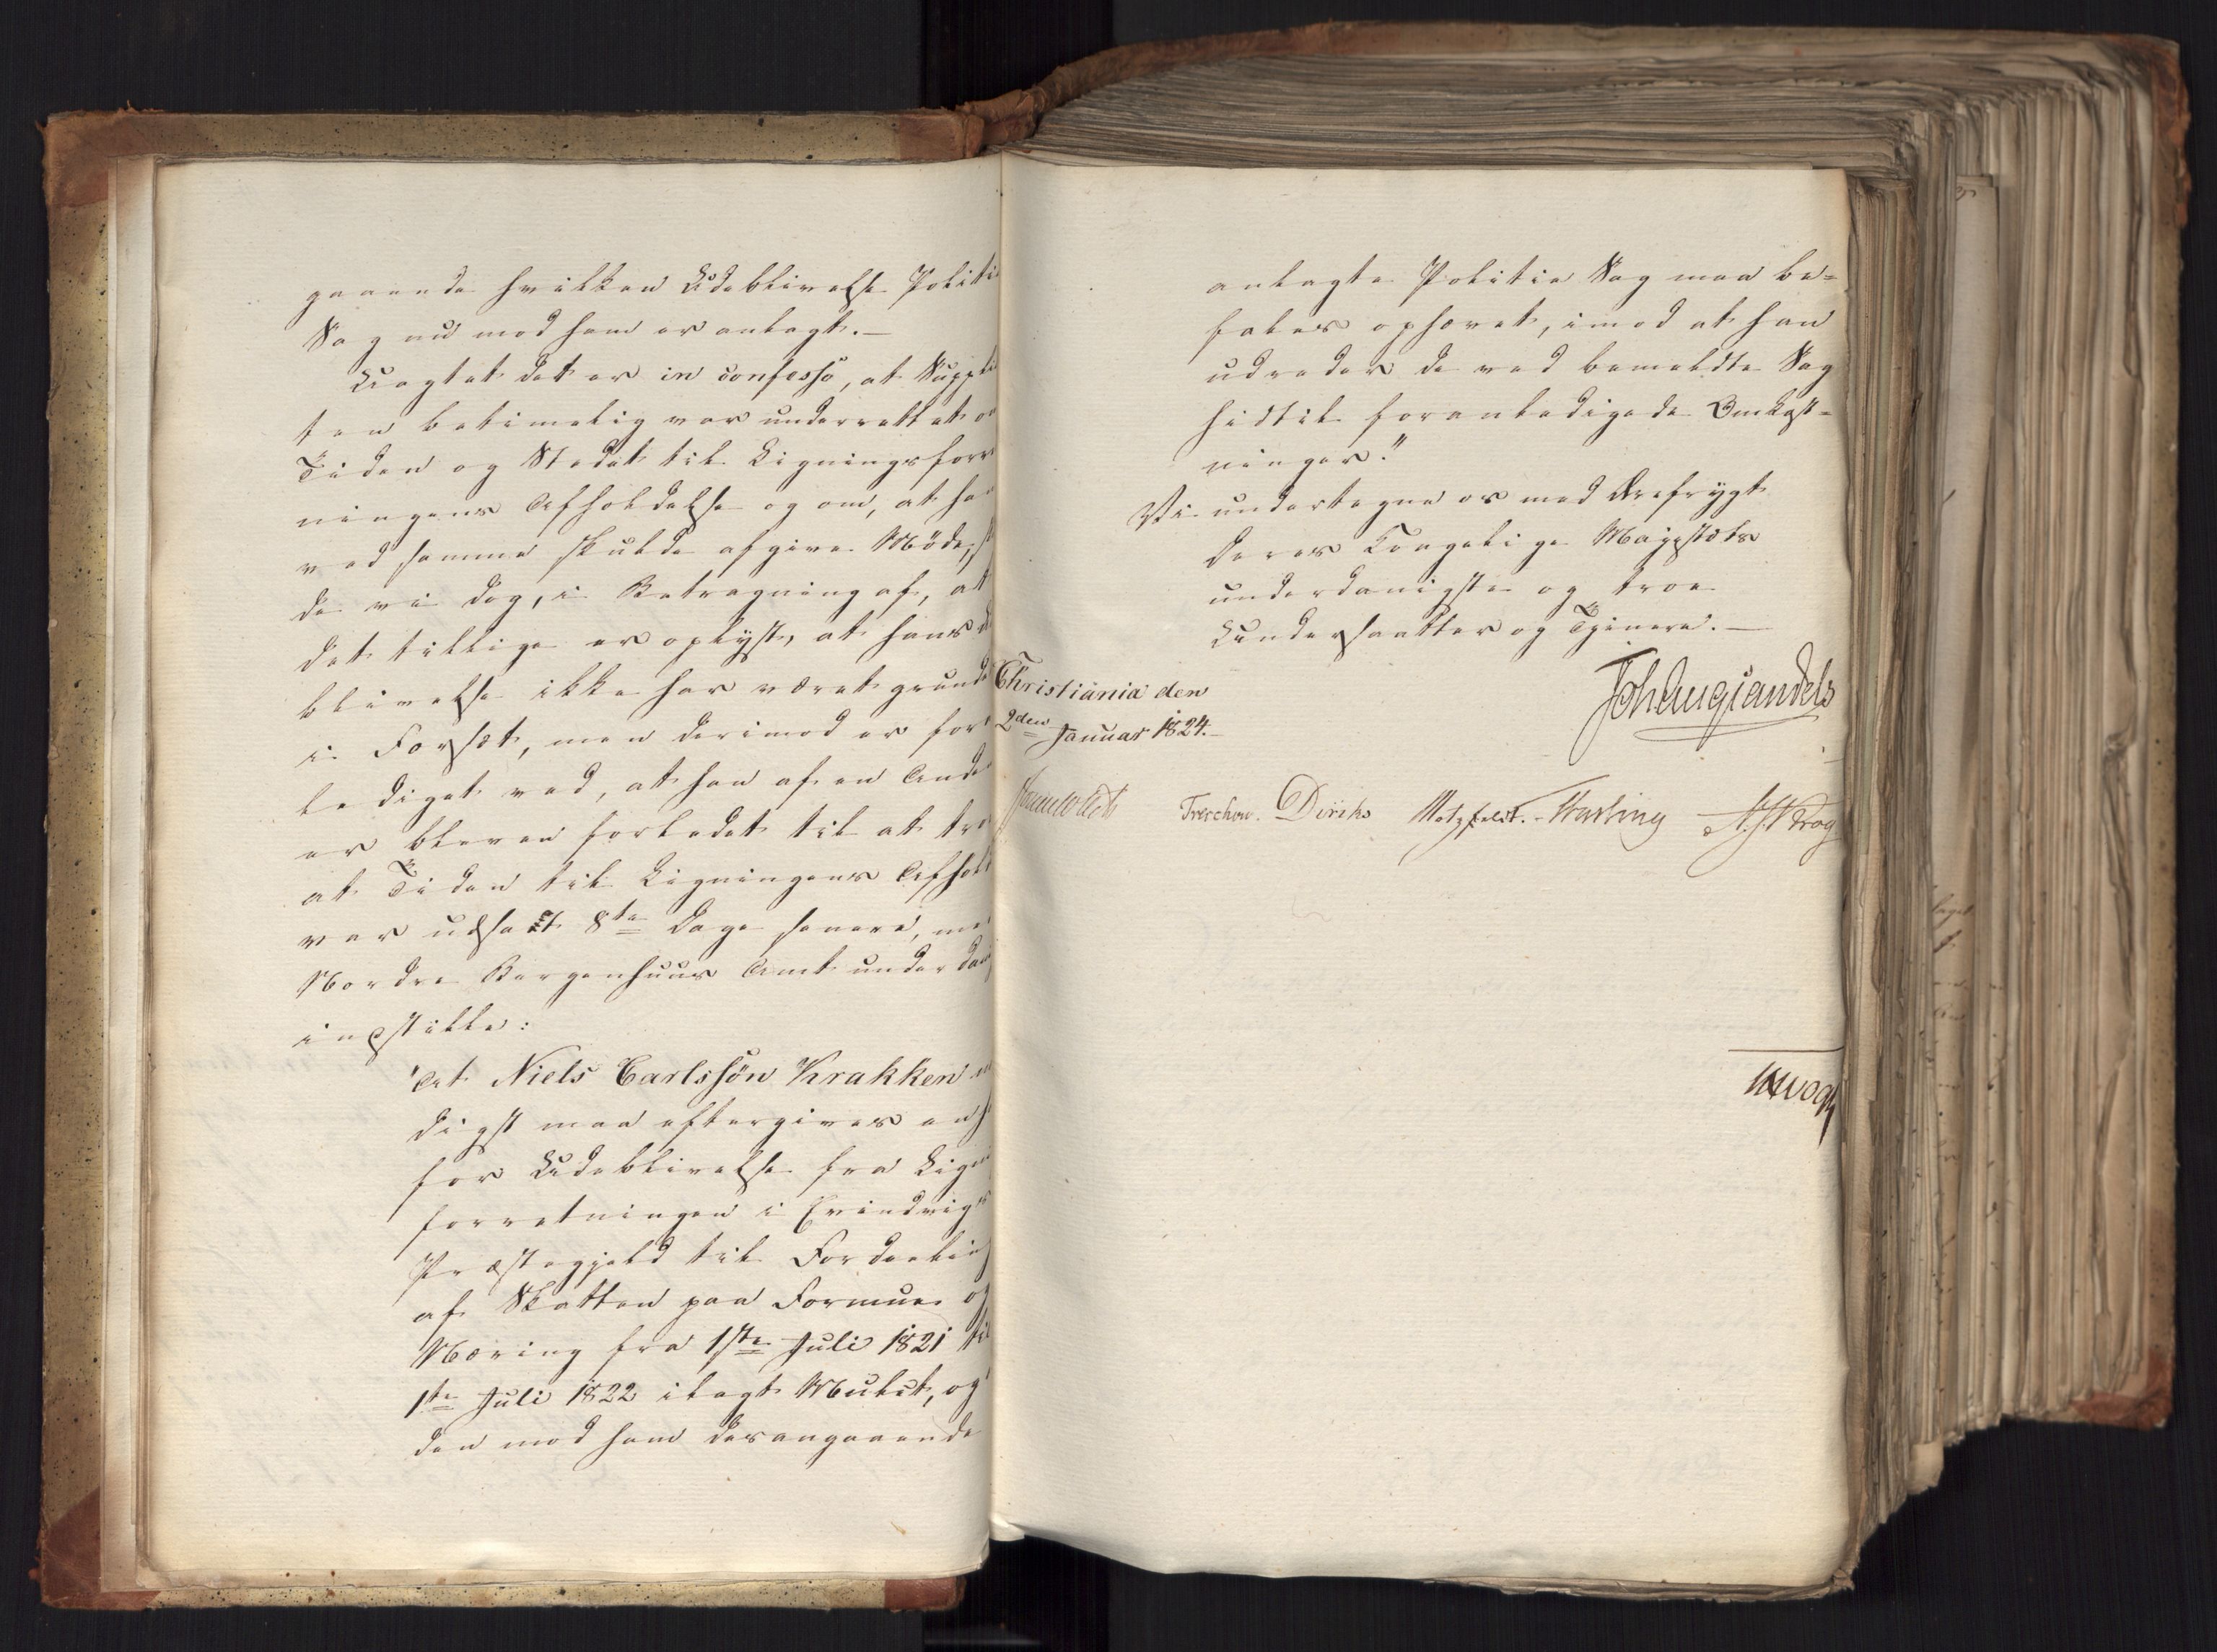 gaaende hvilken Udeblivelse Politie
Sag nu mod ham er anlagt.—
Uagtet det er in confesso, at Suppli
ten betimelig var underrettet o
Tiden og Stedet til Ligningsforr
ningens Afholdelse og om, at ha
ved samme skulde afgive Møde,
de vi dog, i Betragtning af, at
det tillige er oplyst, at hans
blivelse ikke har været grund
i Forsæt, men derimod er for
lediget ved, at han af en Ande
er bleven forledet til at tro
at Tiden til Ligningens Afhol
var udsat 8te Dage senere, me
Nordre Bergenhuus Amt underdan
indstille:
"At Niels Carlssøn Krakken
digst maa eftergives en
for Udeblivelse fra Lign
forretningen i Evindvigs
Præstegjeld til Fordeling
af Skatten paa Formue og
Næring fra 1ste Juli 1821 til
1ste Juli 1822 ilagt Mulct, og
den mod ham desangaaende
anlagte Politie Sag maa be=
fales ophævet, imod at han
udreder de ved bemeldte Sag
hidtil foranledigede Omkost=
ninger."
Vi undertegne os med Ærefrygt
Deres Kongelige Majestæts
underdanigste og troe
Undersaatter og Tjenere.—
Joh Aug Sandels
Christiania den
2den Januar 1824.
Sommerhielm Treschow. Diriks Motzfeldt. Fasting Krog
Vogt